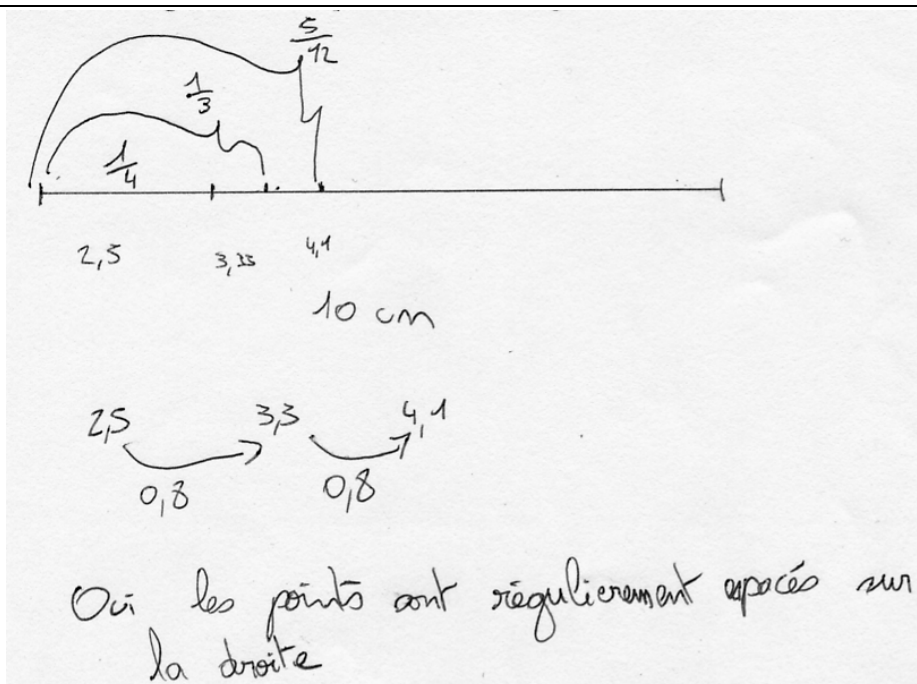 5/12
1/3
1/4
2,5 3,33 4,1
10 cm
2,5 3,3 4,1
0,8 0,8
Oui les points sont régulièrement espacés sur
la droite